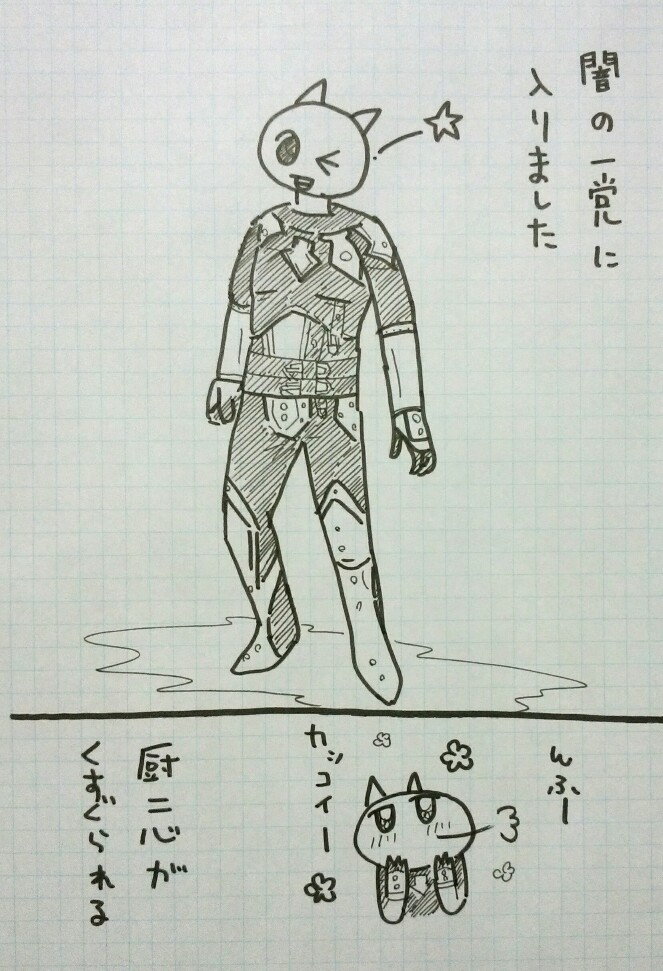 闇の一党に
入りました
んふー
カッコイー
厨二心が
くすぐられる